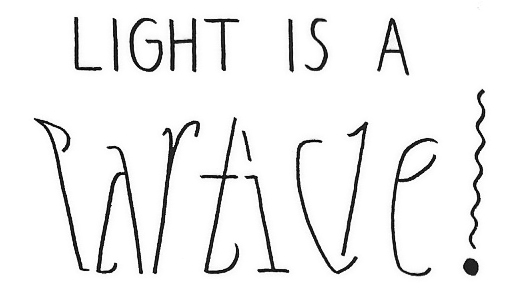 LIGHT IS A
Particle!